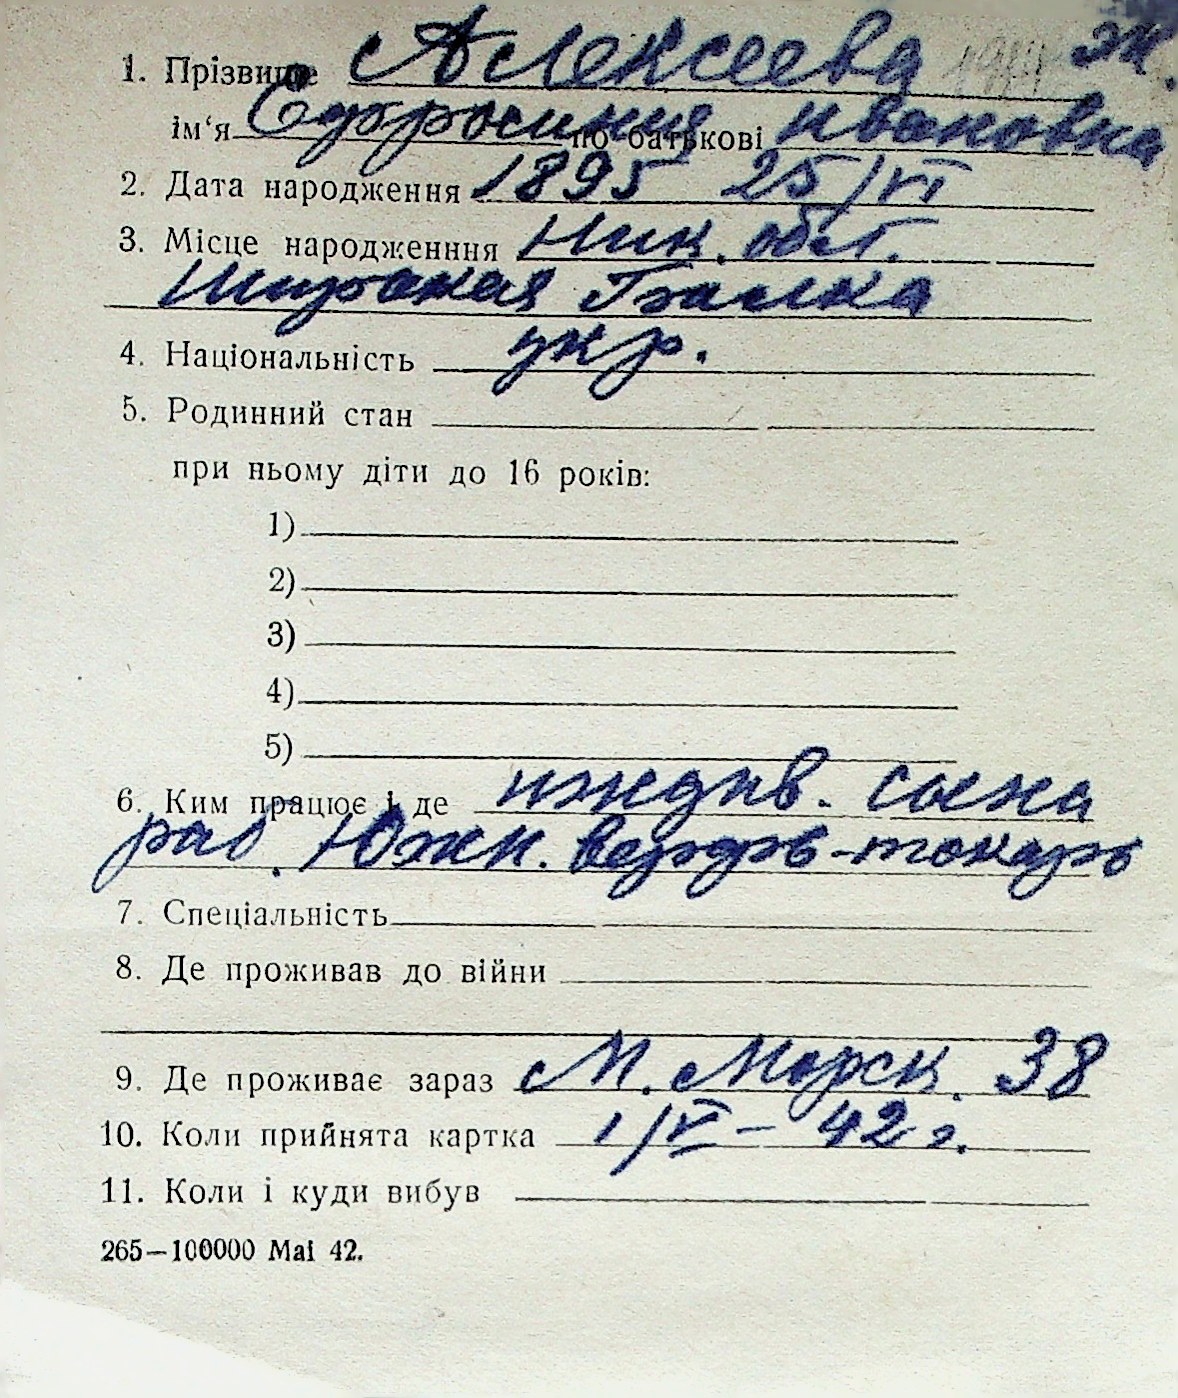 1. Прізвище Алексеева ж.
ім‘я Ефросиния по батькові Ивановна
2. Дата народження 1895 25/VI
3. Місце народженння Ник. обл.
Широкая Балка
4. Національність укр.
5. Родинний стан
при ньому діти до 16 років:
1)
2)
3)
4)
5)
6. Ким працює і де иждив. сына
раб. Южн. верфь-токарь
7. Спеціальність
8. Де проживав до війни
9. Де проживає зараз М. Морск. 38
10. Коли прийнята картка 1/VI – 42 г.
11. Коли і куди вибув
265—100000 Mai 42.